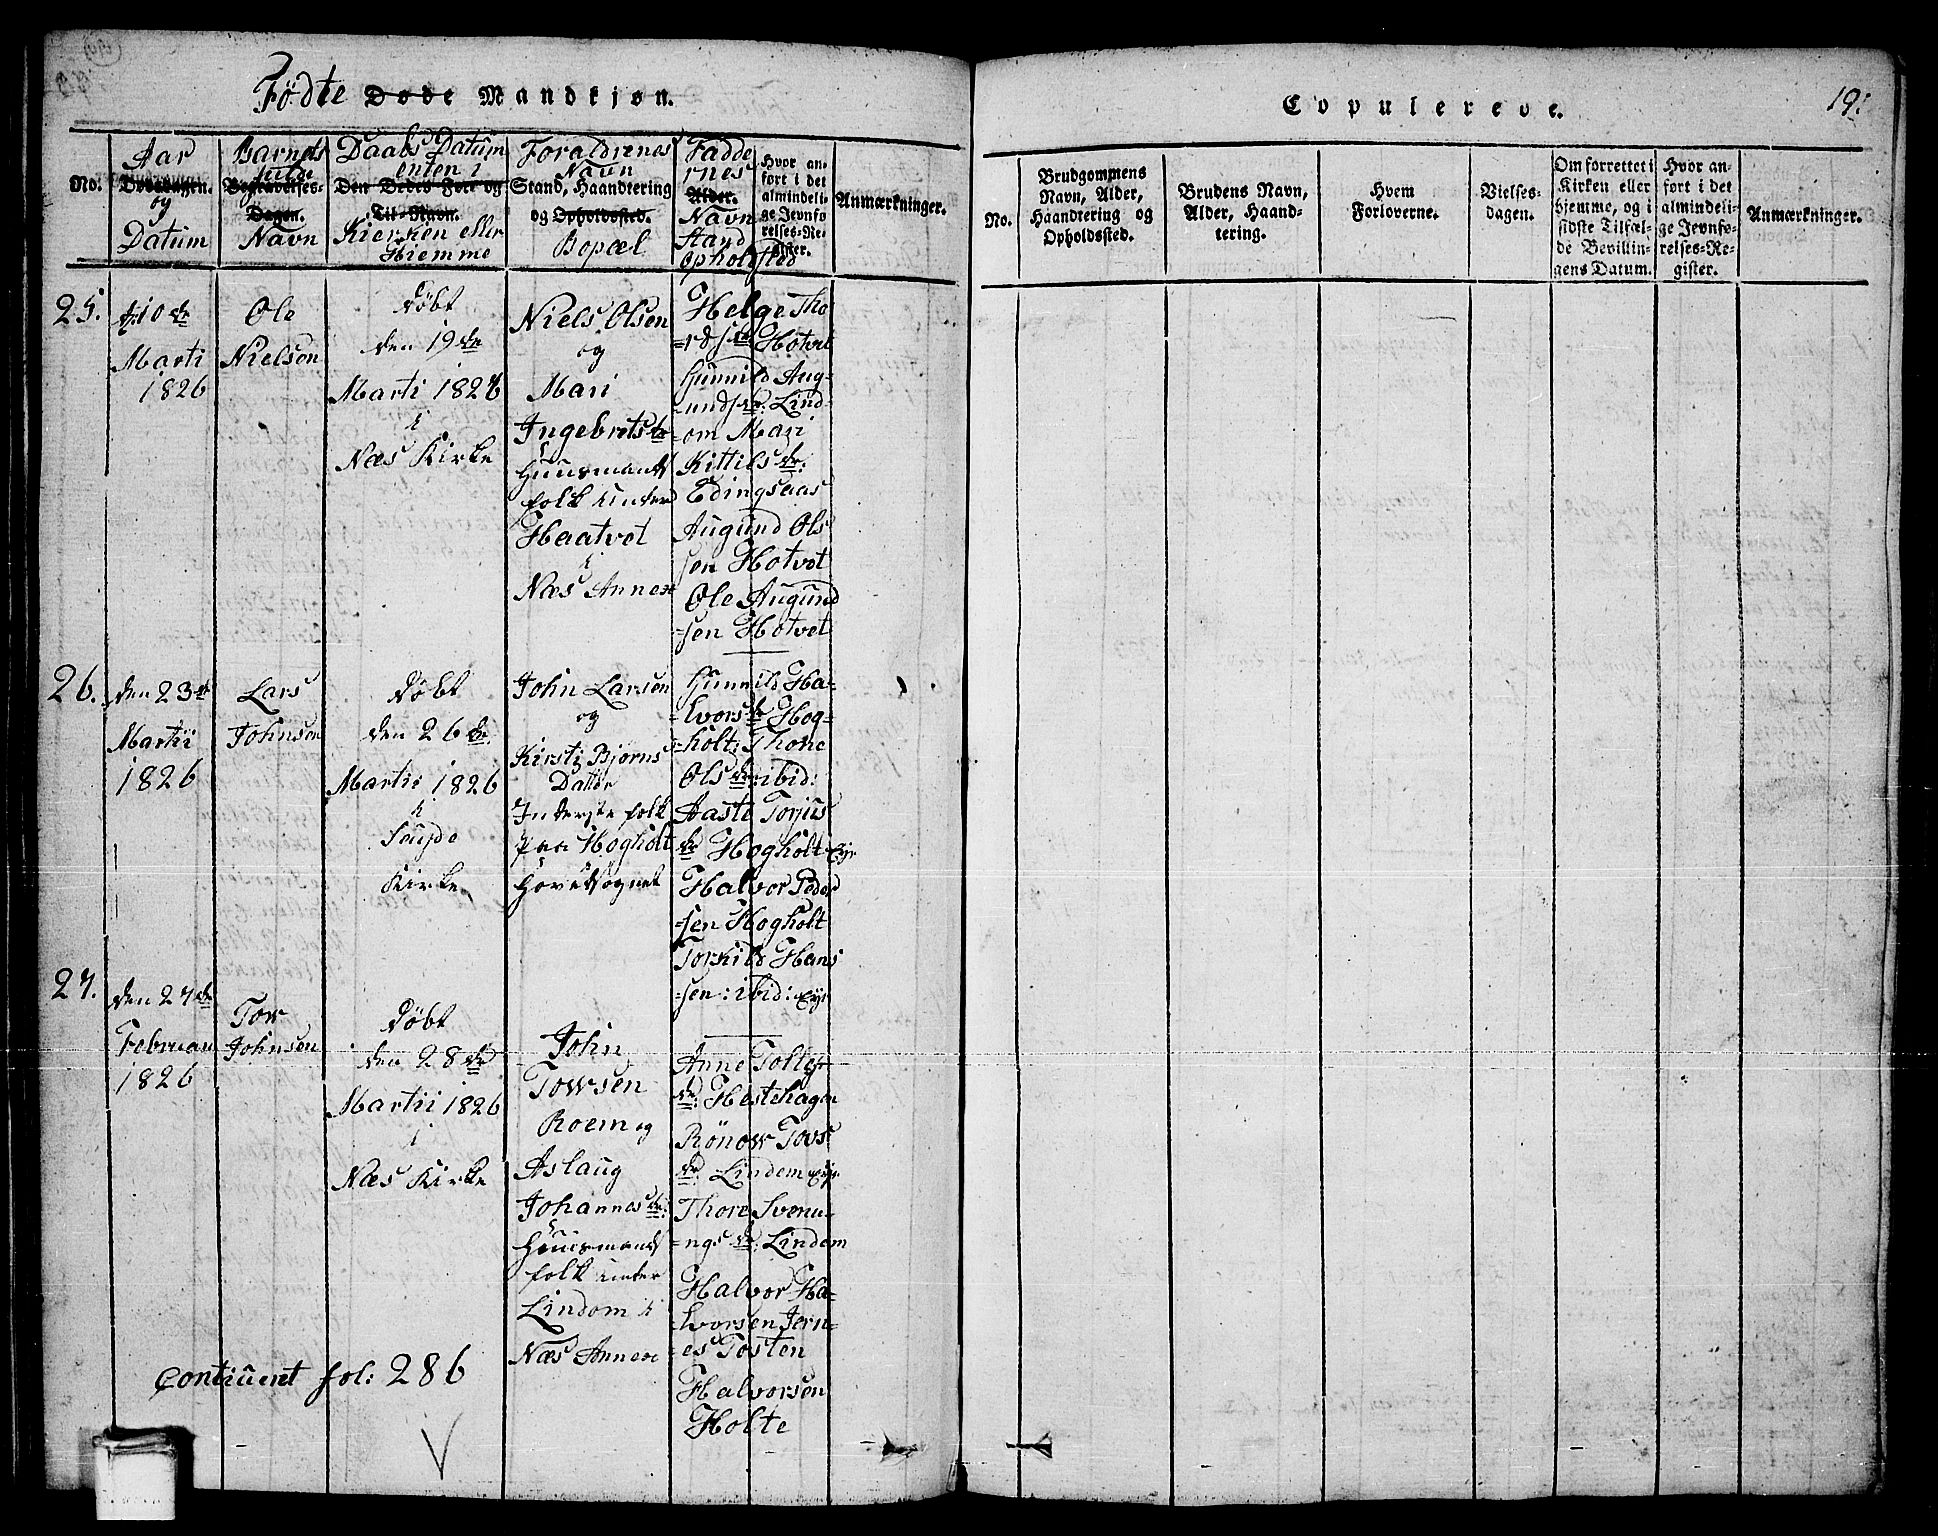 Fødte Døde Mandkjøn.
No.
Aar
Dødsdagen.
og
Datum
Barnets
fulde
Begravelses-
Dagen.
Navn
Daabs Datum
enten i
Den Dødes For- og
Til-Navn.
Kierken eller
Hiemme
Forældrenes
Navn
Stand, Haandtering
og Opholdssted.
Bopæl
Fadde
rnes
Alder.
Navn
Stand
Opholdsted
Hvor an-
ført i det
almindeli-
ge Jevnfø-
relses-Re-
gister.
Anmærkninger.
25.
10de
Marti
1826
Ole
Nielsen
døbt
den 19de
Marti 1826
i
Næs Kirke
Niels Olsen
og
Mari
Ingebretsdr
Huusmands
folk under
Haatvet
i
Næs Annex
Helge Tho
=rdsdr Hotvet
Gunnild Aug-
=undsdr: Lind-
=om Mari
Kittilsdr:
Edingsaas
Augund Ols
sen Hotvet
Ole Augund
=sen Hotvet
26.
den 23de
Martii
1826
Lars
Johnsen
døbt
den 26de
Martii 1826
i
Saude
Kirke
John Larsen
og
Kirsti Bjørns
Datter
Inderste folk
paa Hogholt
Hovedsognet
Gunnild Ha-
=lvorsdr Hog-
=holt: Thone
Olsdr: ibid:
Aaste Torjus
dr Hogholt Eyr
Halvor Peder
=sen Hogholt
Torkild Hans
=sen: ibid: Eyr
27.
den 27de
Februari
1826
Tow
Johnsen
døbt
den 28de
Martii 1826
i
Næs Kirke
John
Towsen
Roem og
Aslaug
Johannesdr:
Huusmands
folk under
Lindem i
Næs Annex
Anne Tollefs
dr: Hestehagen
Rönow Tovs
dr: Lindem Eyr
Thore Svenu-
=ngsdr: Lindem
Halvor Ha-
=lvorsen Jern-
=es Tosten
Halvorsen
Holte
Contiuent fol: 286
Copulerede.
191
No.
Brudgommens
Navn, Alder,
Haandtering og
Opholdssted.
Brudens Navn,
Alder, Haand-
tering.
Hvem
Forloverne.
Vielses-
dagen.
Om forrettet i
Kirken eller
hjemme, og i
sidste Tilfæl-
de Bevillin-
gens Datum.
Hvor an-
ført i det
almindeli-
ge Jevnfø-
relses-Re-
gister.
Anmærkninger.